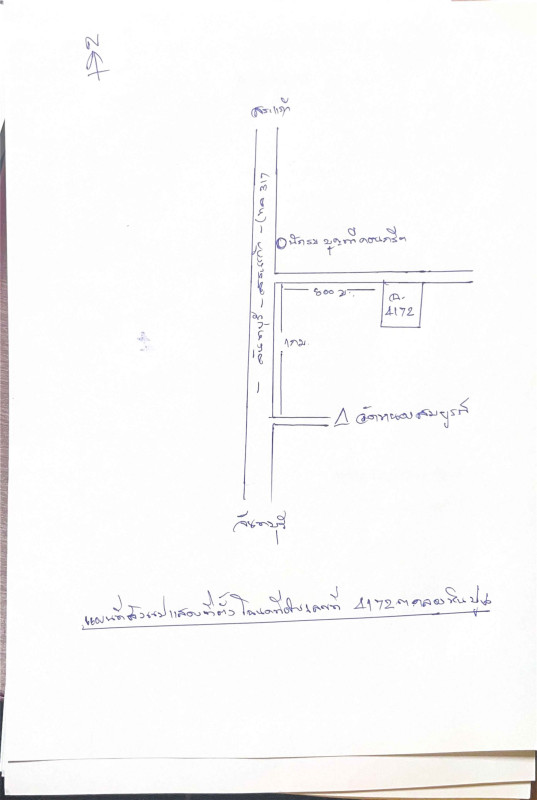 สระแก้ว
จันทบุรี – สระแก้ว – (ทล 317
800 ม.
ฉ.
4172
1 กม.
วัดหนองสมบูรณ์
จันทบุรี
แผนที่สังเขปแสดงที่ตั้งโฉนดที่ดินเลขที่ 4172 ต.คลองหินปูน